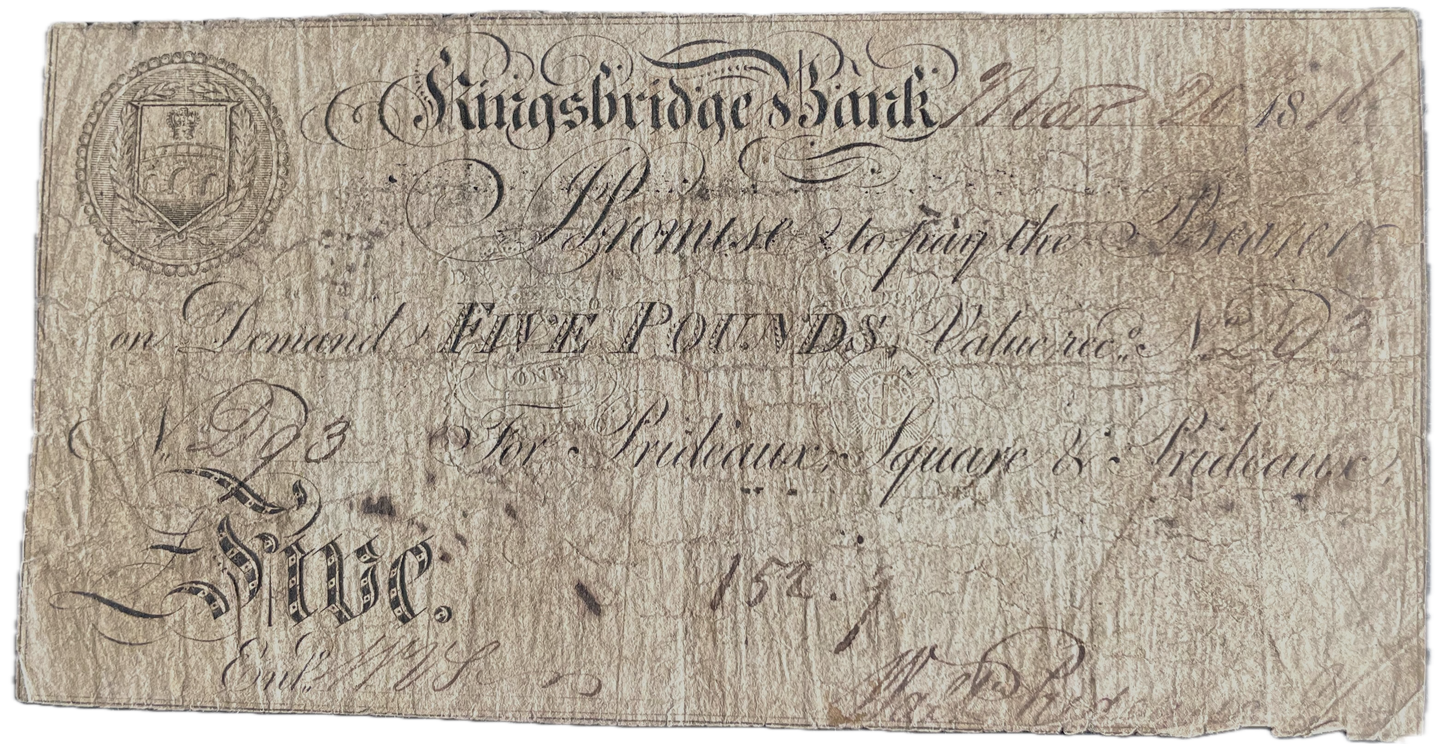 Kingsbridge Bank Mar 20 1816
I Promise to pay the Bearer
on Demand FIVE POUNDS, Value recd. No D93
ONE
No D93 For Prideaux, Square & Prideaux,
Five.
152.
Entd.